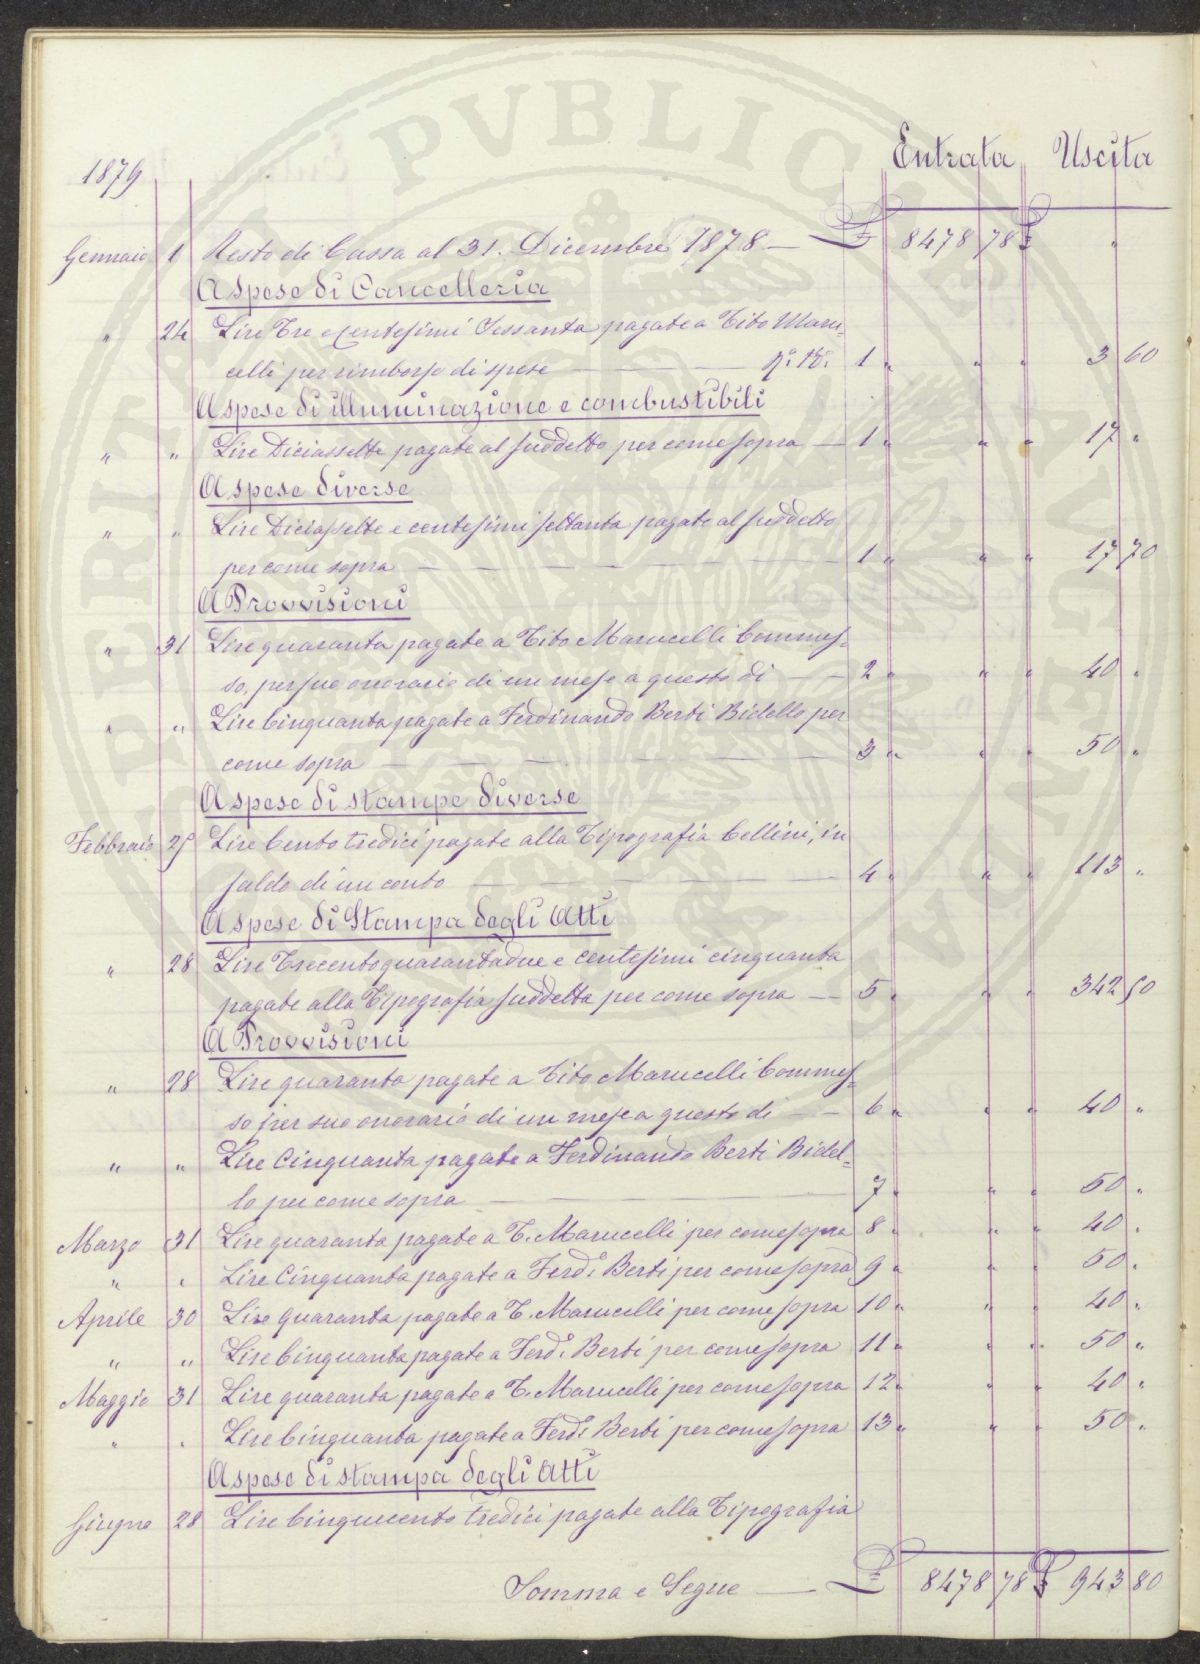 PVBLICAE
Entrata Uscita
1879
Gennaio 1 Resto di Cassa al 31. Dicembre 1878 — £ 8478 78 £ "
A spese di Cancelleria
" 24 Lire Tre e Centesimi Sessanta pagate a Tito Maru-
celli per rimborso di spese — 1 " " " 3 60
A spese di illuminazione e combustibili
" " Lire Diciassette pagate al suddetto per come sopra — 1 " " " 17 "
A spese diverse
" " Lire Diciassette e centesimi settanta pagate al suddetto
per come sopra — 1 " " " 17 70
A Provvisioni
" 31 Lire quaranta pagate a Tito Marucelli Commes-
so, per suo onorario di un mese a questo dì — 2 " " " 40 "
" " Lire Cinquanta pagate a Ferdinando Berti Bidello per
come sopra — 3 " " " 50 "
A spese di stampe diverse
Febbraio 25 Lire Cento tredici pagate alla Tipografia Cellini, in
saldo di un conto — 4 " " " 113 "
A spese di Stampa degli Atti
" 28 Lire Trecentoquarantadue e centesimi cinquanta
pagate alla Tipografia suddetta per come sopra — 5 " " " 342 50
A Provvisioni
" 28 Lire quaranta pagate a Tito Marucelli Commes-
so per suo onorario di un mese a questo dì — 6 " " " 40 "
" " Lire Cinquanta pagate a Ferdinando Berti Bidel-
lo per come sopra — 7 " " " 50 "
Marzo 31 Lire quaranta pagate a T. Marucelli per come sopra 8 " " " 40 "
" " Lire Cinquanta pagate a Ferd. Berti per come sopra 9 " " " 50 "
Aprile 30 Lire quaranta pagate a T. Marucelli per come sopra 10 " " " 40 "
" " Lire Cinquanta pagate a Ferd. Berti per come sopra 11 " " " 50 "
Maggio 31 Lire quaranta pagate a T. Marucelli per come sopra 12 " " " 40 "
" " Lire Cinquanta pagate a Ferd. Berti per come sopra 13 " " " 50 "
A spese di stampa degli Atti
Giugno 28 Lire Cinquecento tredici pagate alla Tipografia
Somma e Segue — £ 8478 78 £ 943 80